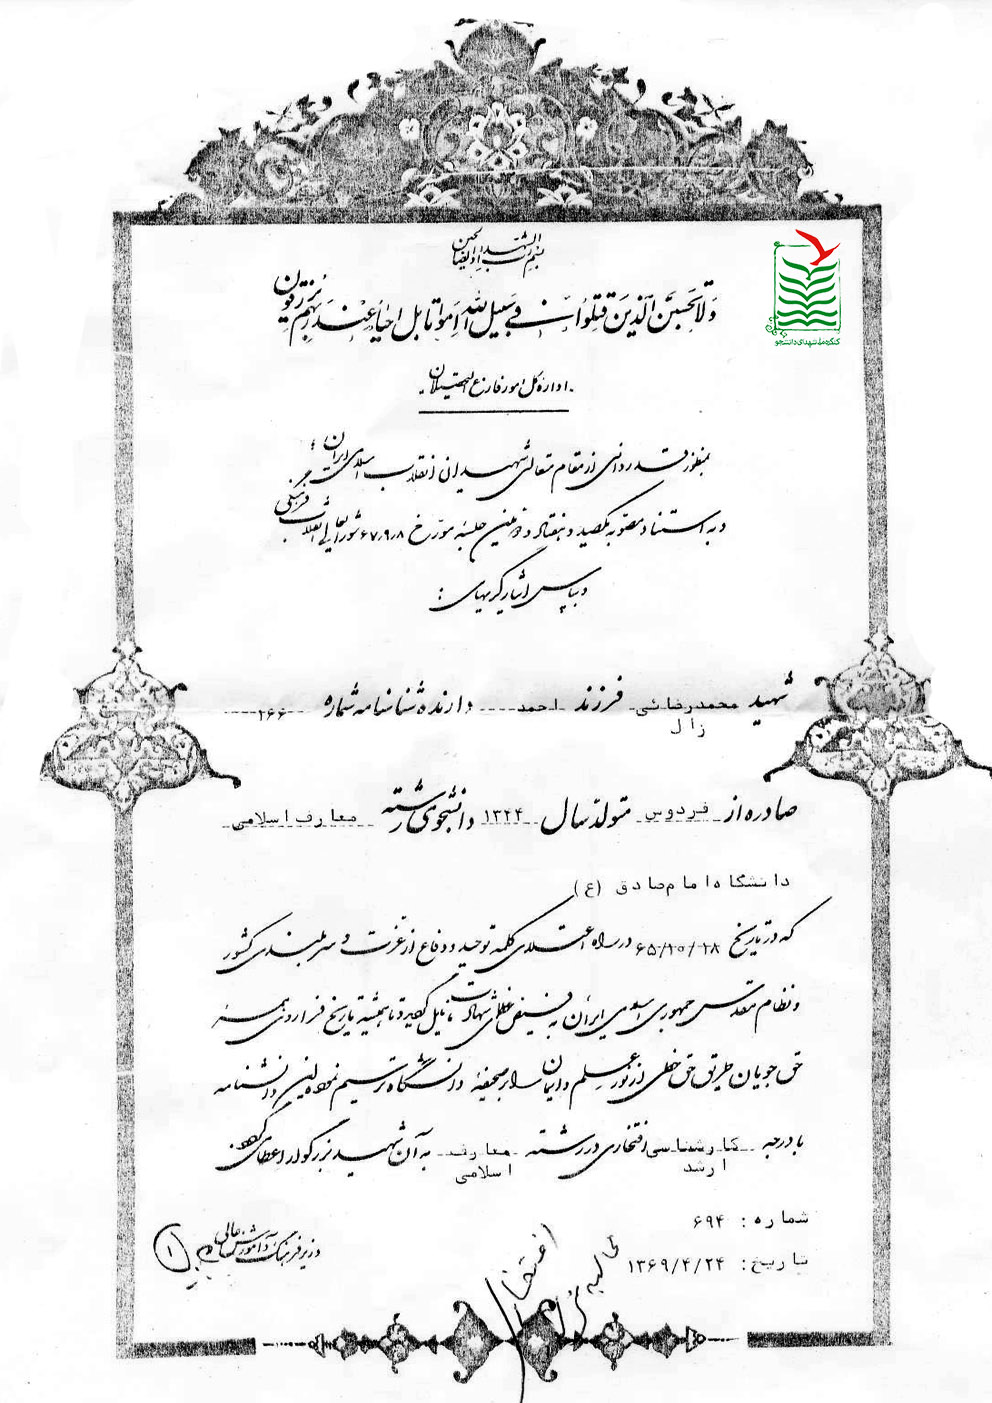 بسم رب الشهداء و الصالحین
ولا تحسبن الذین قتلوا فی سبیل الله امواتا بل احیاء عند ربهم یرزقون
کنگره ملی شهدای دانشجو
اداره کل امور فارغ التحصیلان
بمنظور قدردانی از مقام متعالی شهیدان انقلاب اسلامی ایران
و به استناد مصوبه یکصد و هفتاد و دومین جلسه مورخ ۶۷/۹/۸ شورایعالی انقلاب فرهنگی
و بپاس ایثارگریهای :
شهید محمدرضائی فرزند احمد دارنده شناسنامه شماره ۲۶۶
زال
صادره از فردوس متولد سال ۱۳۴۴ دانشجوی رشته معارف اسلامی
دانشگاه امام صادق (ع)
که در تاریخ ۶۵/۱۰/۲۸ در راه اعتلای کلمه توحید و دفاع از عزت و سربلندی کشور
و نظام مقدس جمهوری اسلامی ایران به فیض عظمی شهادت نایل گردید و تا همیشه تاریخ فرا روی همه
حق جویان طریق حق خطی از نور علم و ایمان را بر صحیفه دانشگاه ترسیم نموده این دانشنامه
با درجه کارشناسی افتخاری در رشته معارف به آن شهید بزرگوار اعطا می گردد.
ارشد اسلامی
شماره : ۶۹۴
تاریخ : ۱۳۶۹/۴/۲۴
وزیر فرهنگ و آموزش عالی
۱